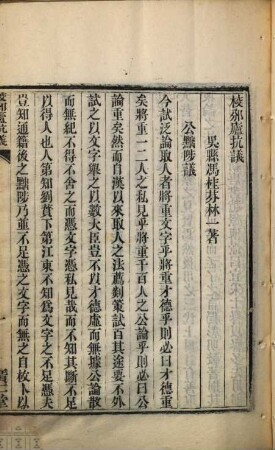 校邠廬抗議
吳縣馮桂芬林一著
公黜陟議
今試泛論取人者將重文字乎將重才德乎則必曰才德重
矣將重一二人之私見乎將重千百人之公論乎則必曰公
論重矣然而自漢以來取人之法薦剡策試百其途要不外
試之以文字舉之以數大臣豈不以才德虛而無據公論散
而無紀不得不舍之而憑文字憑私見哉而不知其斷不足
以得人也人第知劉蕡下第江東不知為文字之不足憑夫
豈知通籍後之黜陟乃並不足憑之文字而無之自枚卜以
校邠廬抗議